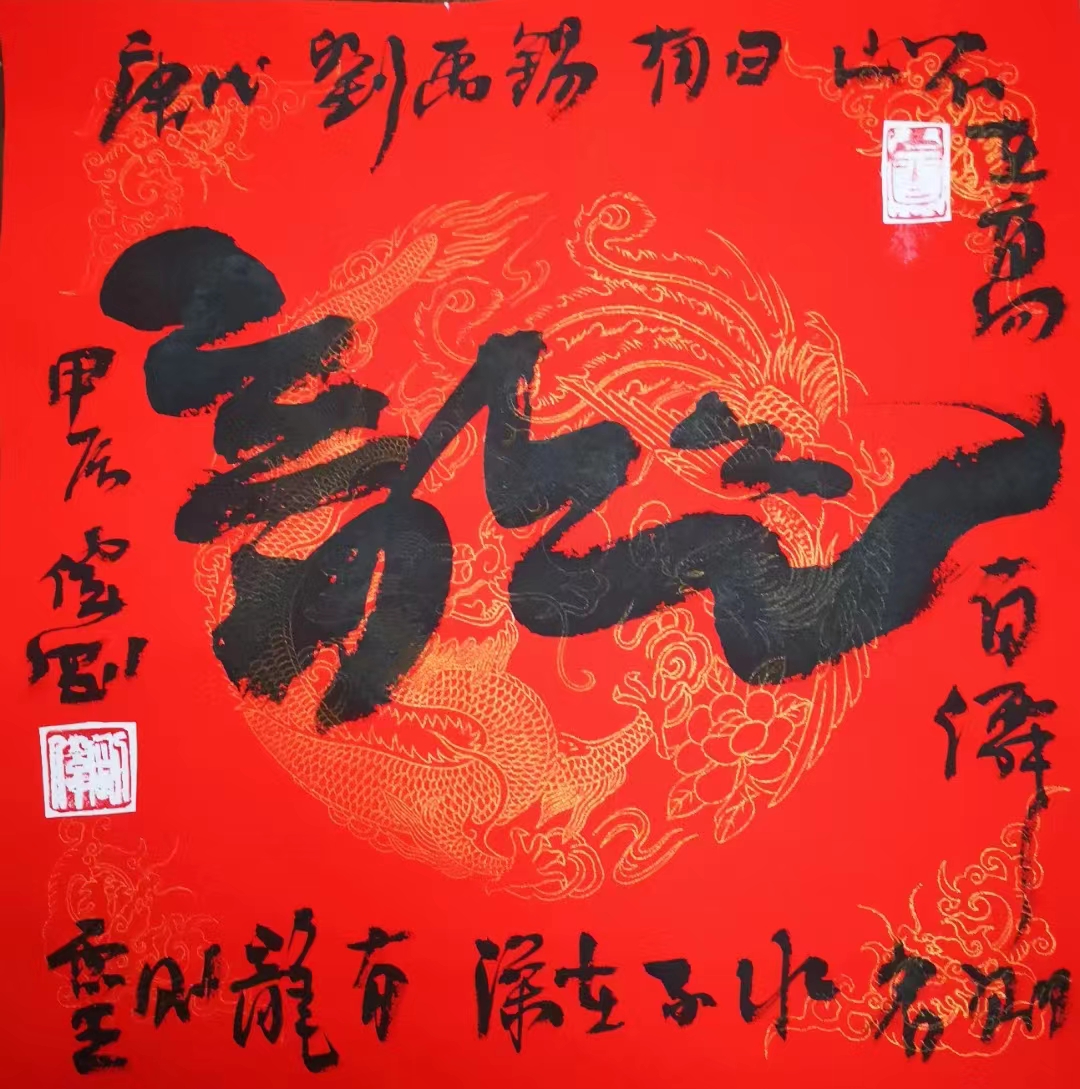 龍
唐代劉禹錫有曰山不
在高有僊
則名水不在深有龍則靈
甲辰